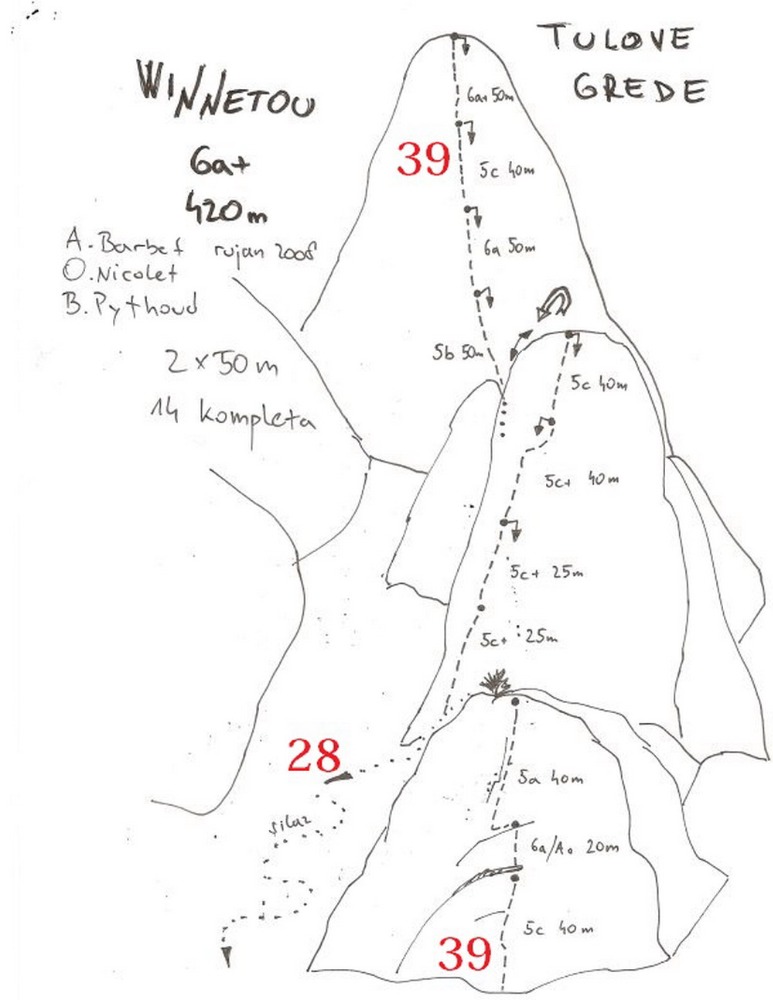 TULOVE
GREDE
WINNETOU
6a+
420m
A. Barbet rujan 2008
O. Nicolet
B. Pythoud
2 x 50 m
14 kompleta
6a+ 50m
39
5c 40m
6a 50m
5b 50m
5c 40m
5c+ 40m
5c+ 25m
5c+ 25m
28
5a 40m
silaz
6a/A0 20m
5c 40m
39